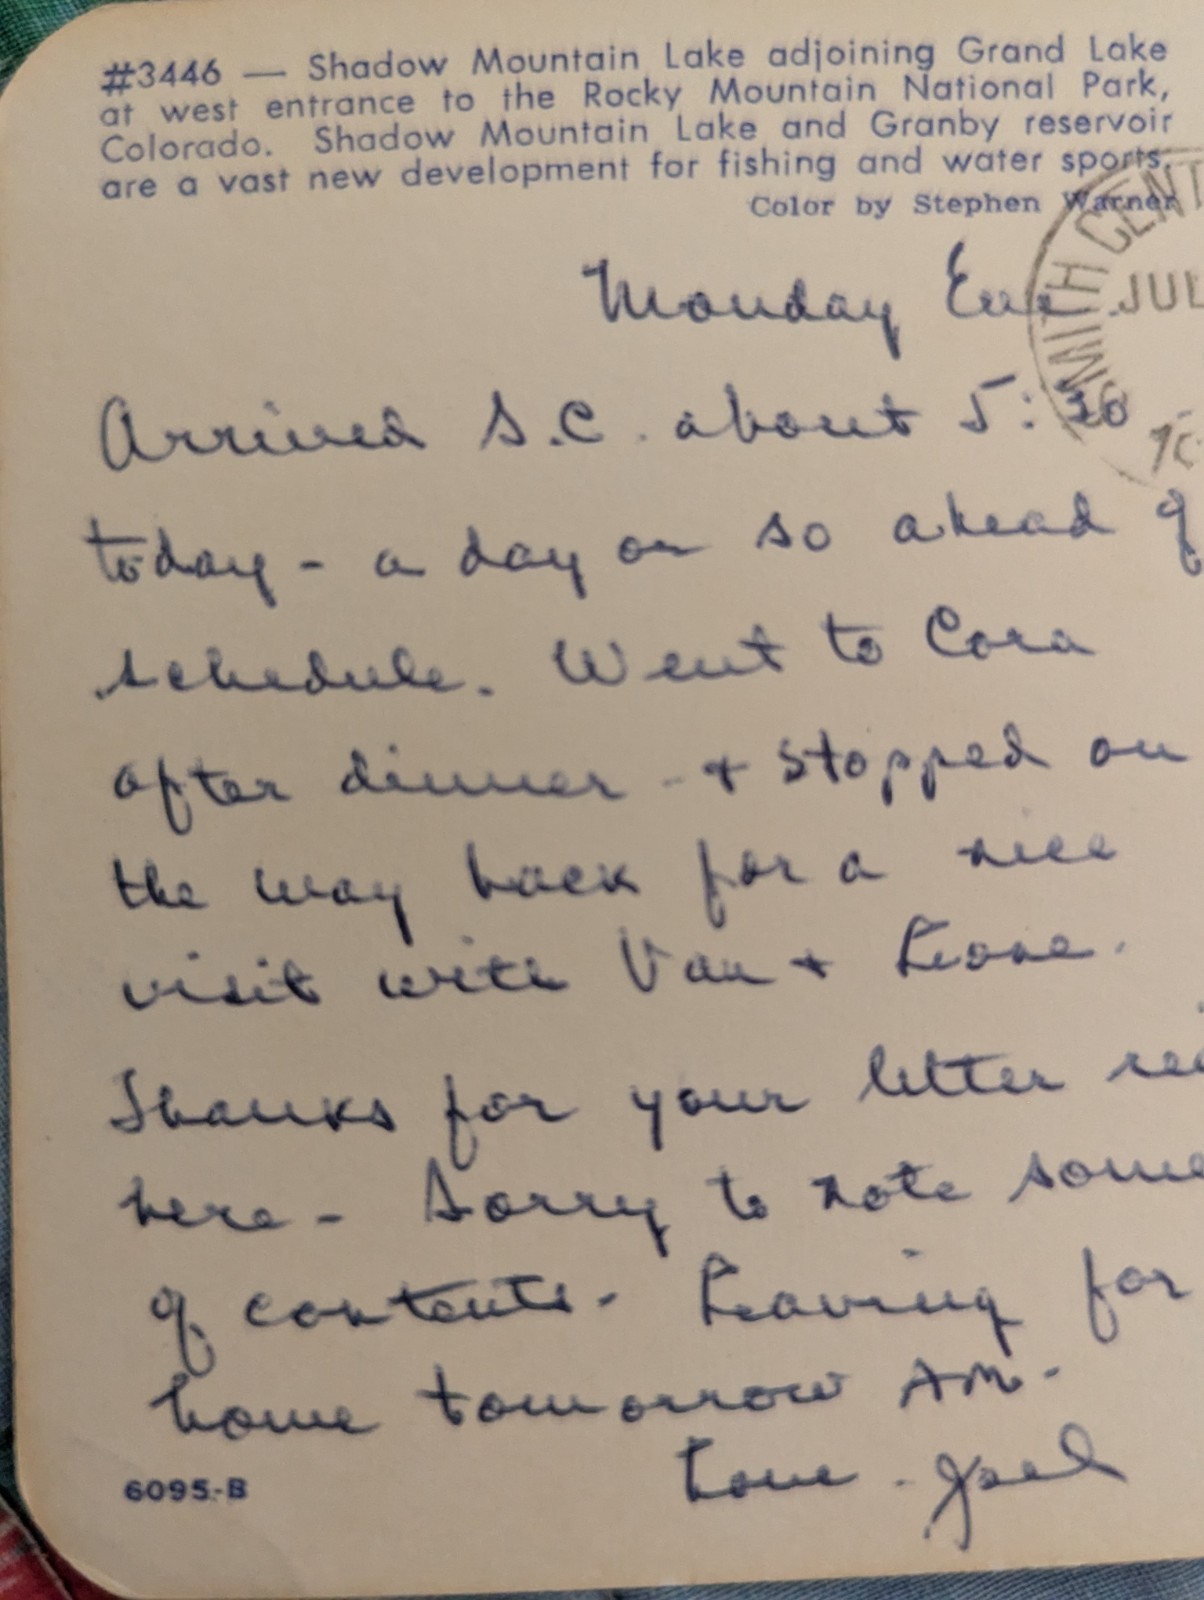 #3446 — Shadow Mountain Lake adjoining Grand Lake
at west entrance to the Rocky Mountain National Park,
Colorado. Shadow Mountain Lake and Granby reservoir
are a vast new development for fishing and water sports.
Color by Stephen Warner
SMITH CENT
JUL
Monday Eve.
Arrived S.C. about 5:30
today - a day or so ahead of
schedule. Went to Cora
after dinner - + stopped on
the way back for a nice
visit with Van + Leone.
Thanks for your letter rec
here - Sorry to note some
of contents. Leaving for
home tomorrow AM.
Love - Joel
6095-B